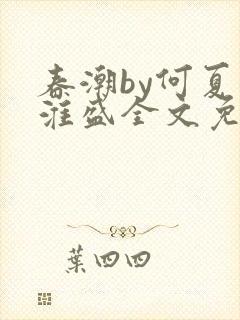 春潮by何夏
漄盛全文免
葉四四